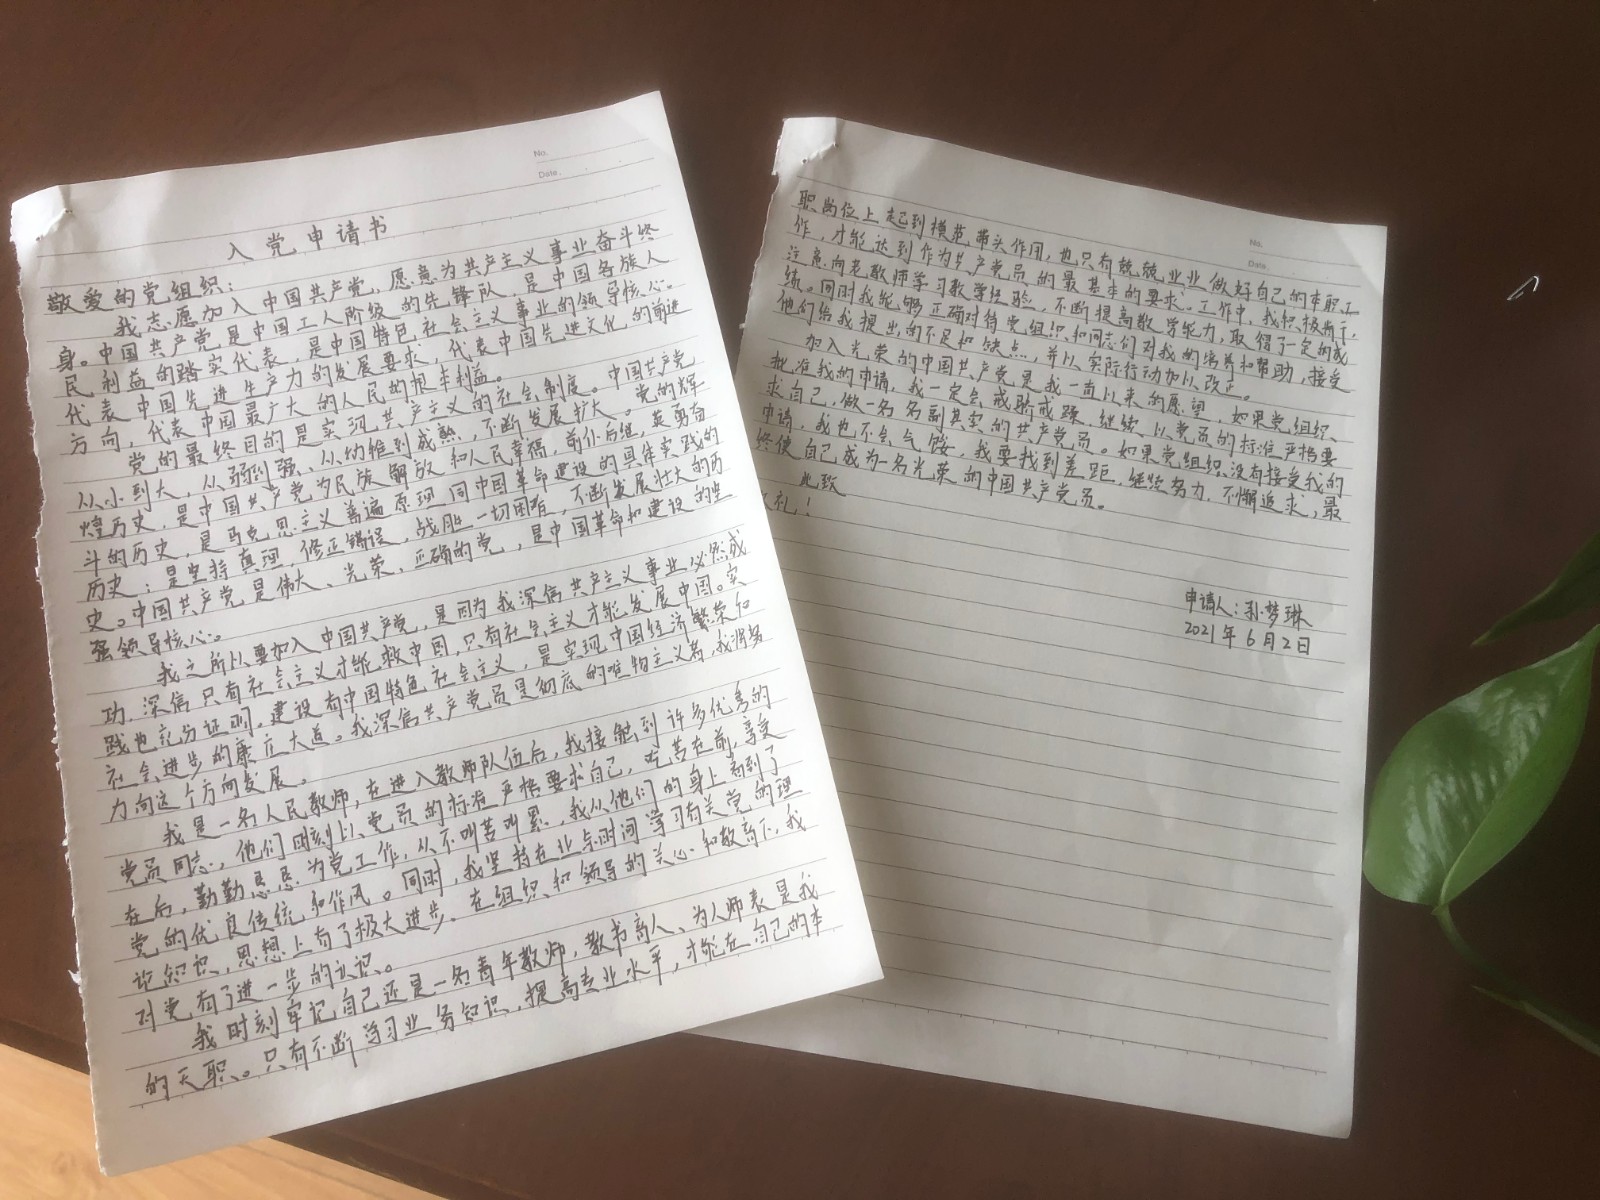 No.
Date.
入党申请书
敬爱的党组织：
我志愿加入中国共产党，愿意为共产主义事业奋斗终
身。中国共产党是中国工人阶级的先锋队，是中国各族人
民利益的踏实代表，是中国特色社会主义事业的领导核心。
代表中国先进生产力的发展要求，代表中国先进文化的前进
方向，代表中国最广大的人民的根本利益。
党的最终目的是实现共产主义的社会制度。中国共产党
从小到大，从弱到强、从幼稚到成熟，不断发展扩大。党的辉
煌历史，是中国共产党为民族解放和人民幸福，前仆后继，英勇奋
斗的历史，是马克思主义普遍原理同中国革命建设的具体实践的
历史；是坚持真理，修正错误，战胜一切困难，不断发展壮大的历
史。中国共产党是伟大、光荣、正确的党，是中国革命和建设的坚
强领导核心。
我之所以要加入中国共产党，是因为我深信共产主义事业必然成
功，深信只有社会主义才能救中国，只有社会主义才能发展中国。实
践也充分证明，建设有中国特色社会主义，是实现中国经济繁荣和
社会进步的康庄大道。我深信共产党员是彻底的唯物主义者，我将努
力向这个方向发展。
我是一名人民教师，在进入教师队伍后，我接触到许多优秀的
党员同志，他们时刻以党员的标准严格要求自己，吃苦在前，享受
在后，勤勤恳恳为党工作，从不叫苦叫累，我从他们的身上看到了
党的优良传统和作风。同时，我坚持在业余时间学习有关党的理
论知识，思想上有了极大进步。在组织和领导的关心和教育下，我
对党有了进一步的认识。
我时刻牢记自己还是一名青年教师，教书育人、为人师表是我
的天职。只有不断学习业务知识，提高专业水平，才能在自己的本
No.
Date.
职岗位上起到模范带头作用，也只有兢兢业业做好自己的本职工
作，才能达到作为共产党员的最基本的要求。工作中，我积极肯干，
注意向老教师学习教学经验，不断提高教学能力，取得了一定的成
绩。同时我能够正确对待党组织和同志们对我的培养和帮助，接受
他们给我提出的不足和缺点，并以实际行动加以改正。
加入光荣的中国共产党是我一直以来的愿望，如果党组织
批准我的申请，我一定会戒骄戒躁，继续以党员的标准严格要
求自己，做一名名副其实的共产党员。如果党组织没有接受我的
申请，我也不会气馁，我要找到差距，继续努力，不懈追求，最
终使自己成为一名光荣的中国共产党员。
此致
礼！
申请人：孙梦琳
2021年6月2日